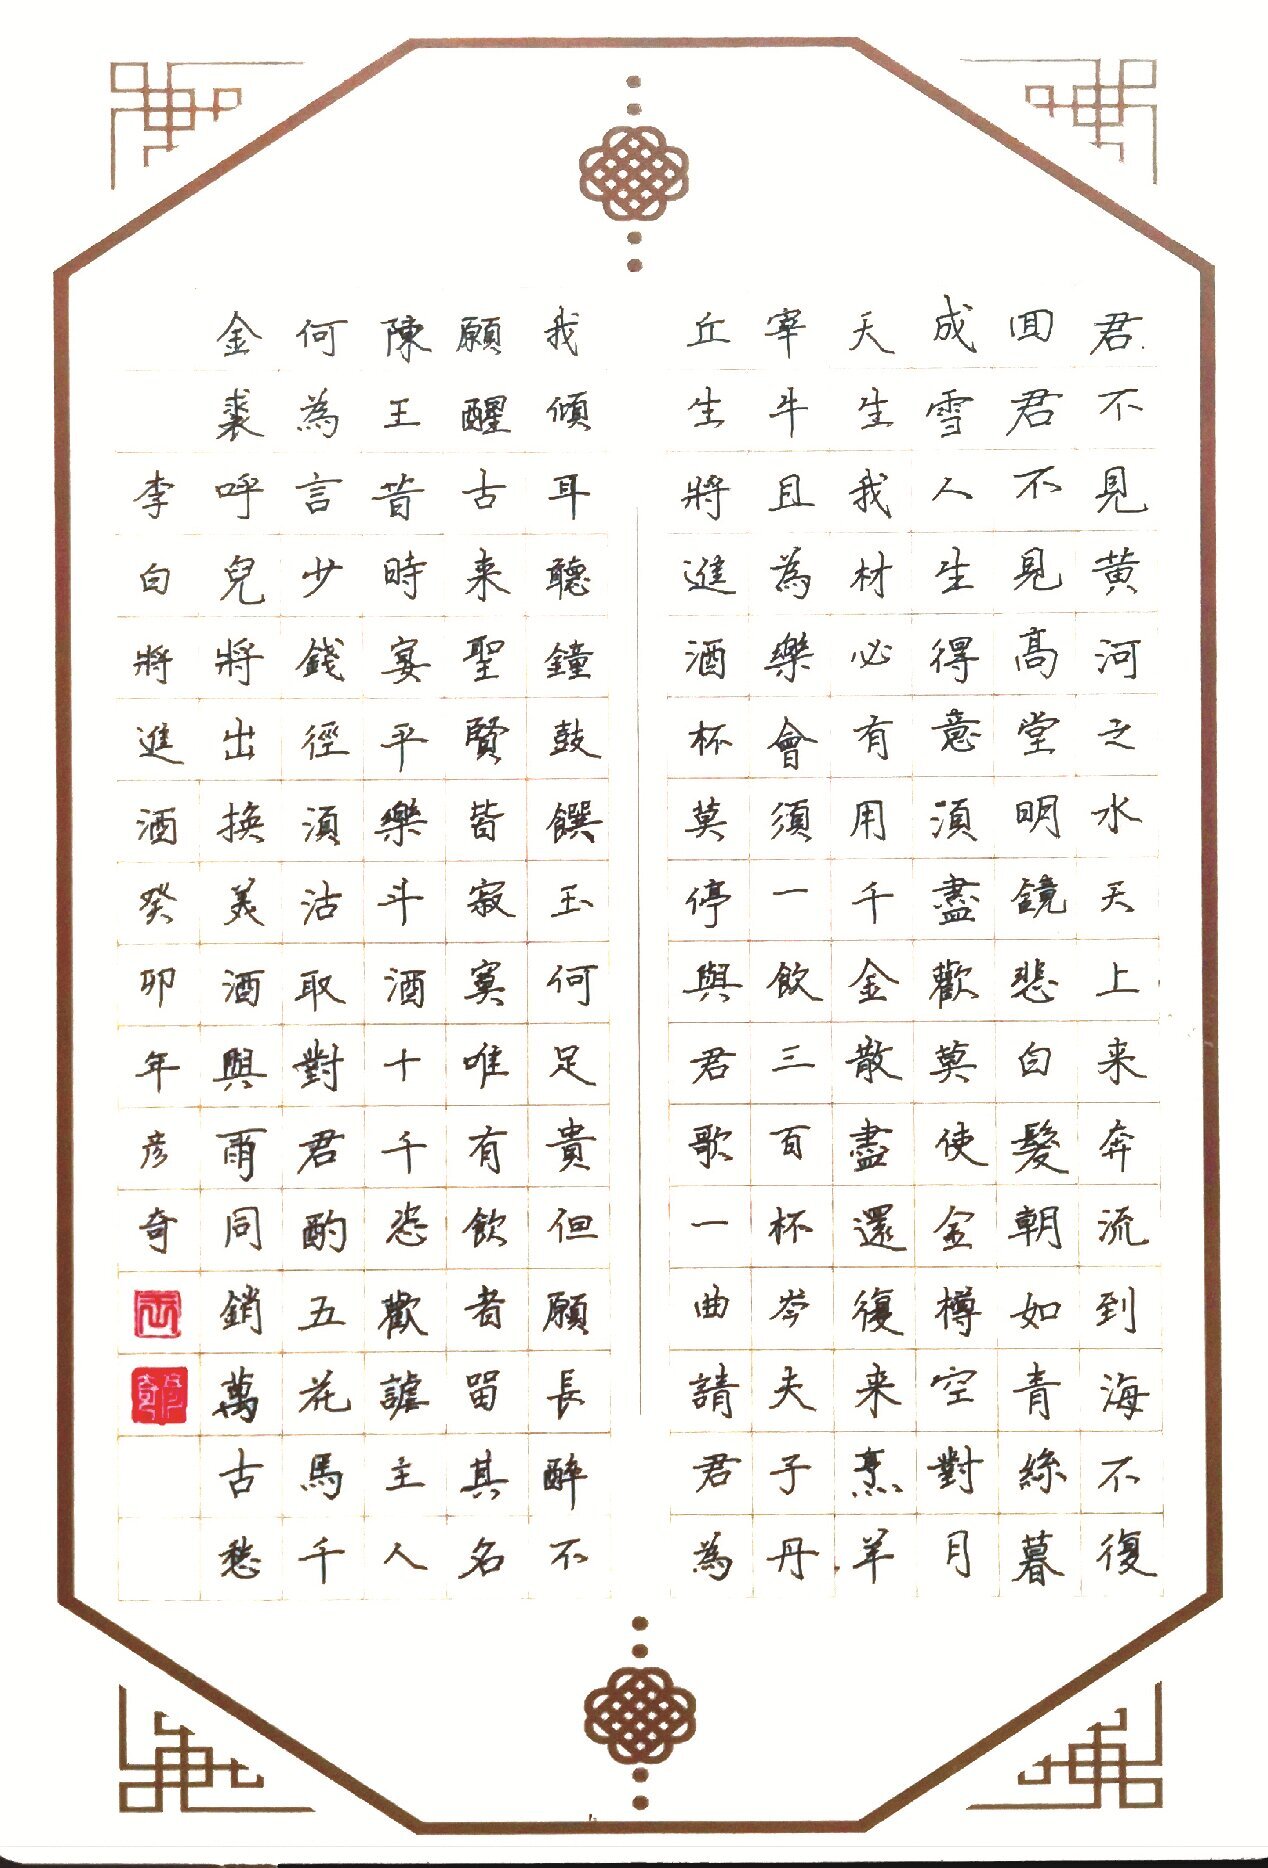 君不見黄河之水天上来奔流到海不復
回君不見高堂明鏡悲白髮朝如青絲暮
成雪人生得意須盡歡莫使金樽空對月
天生我材必有用千金散盡還復来烹羊
宰牛且為樂會須一飲三百杯岑夫子丹
丘生將進酒杯莫停與君歌一曲請君為
我傾耳聽鐘鼓饌玉何足貴但願長醉不
願醒古来聖賢皆寂寞唯有飲者留其名
陳王昔時宴平樂斗酒十千恣歡謔主人
何為言少錢徑須沽取對君酌五花馬千
金裘呼兒將出換美酒與爾同銷萬古愁
李白將進酒癸卯年彦奇